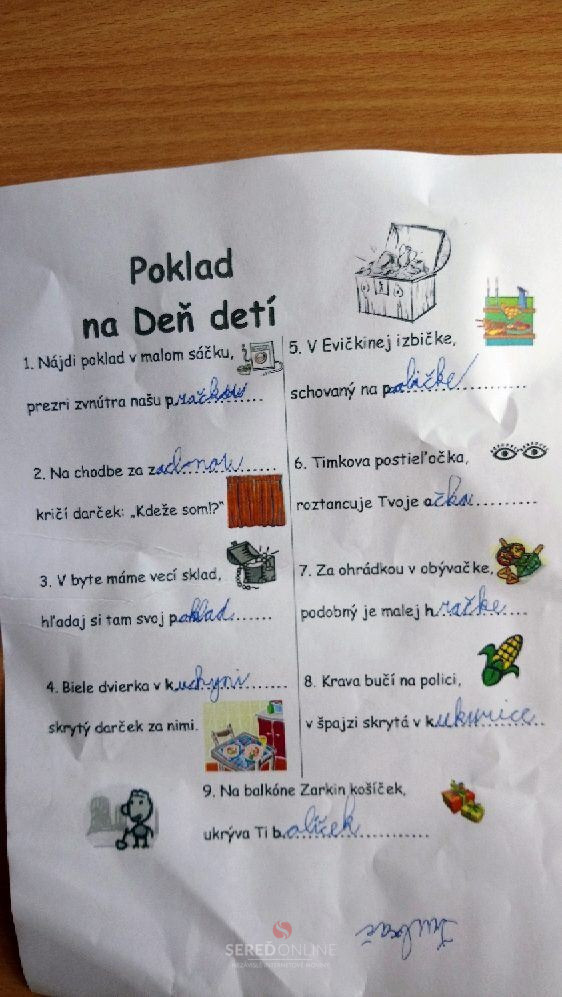 Poklad
na Deň detí
1. Nájdi poklad v malom sáčku,
prezri zvnútra našu pračkou....
2. Na chodbe za záclonou......
kričí darček: „Kdeže som!?"
3. V byte máme vecí sklad,
hľadaj si tam svoj poklad.......
4. Biele dvierka v kuchyni.......
skrytý darček za nimi.
5. V Evičkinej izbičke,
schovaný na poličke.............
6. Timkova postieľočka,
roztancuje Tvoje očka...........
7. Za ohrádkou v obývačke,
podobný je malej hračke......
8. Krava bučí na polici,
v špajzi skrytá v kukurice..
9. Na balkóne Zarkin košíček,
ukrýva Ti balíček..............
SEREĎONLINE